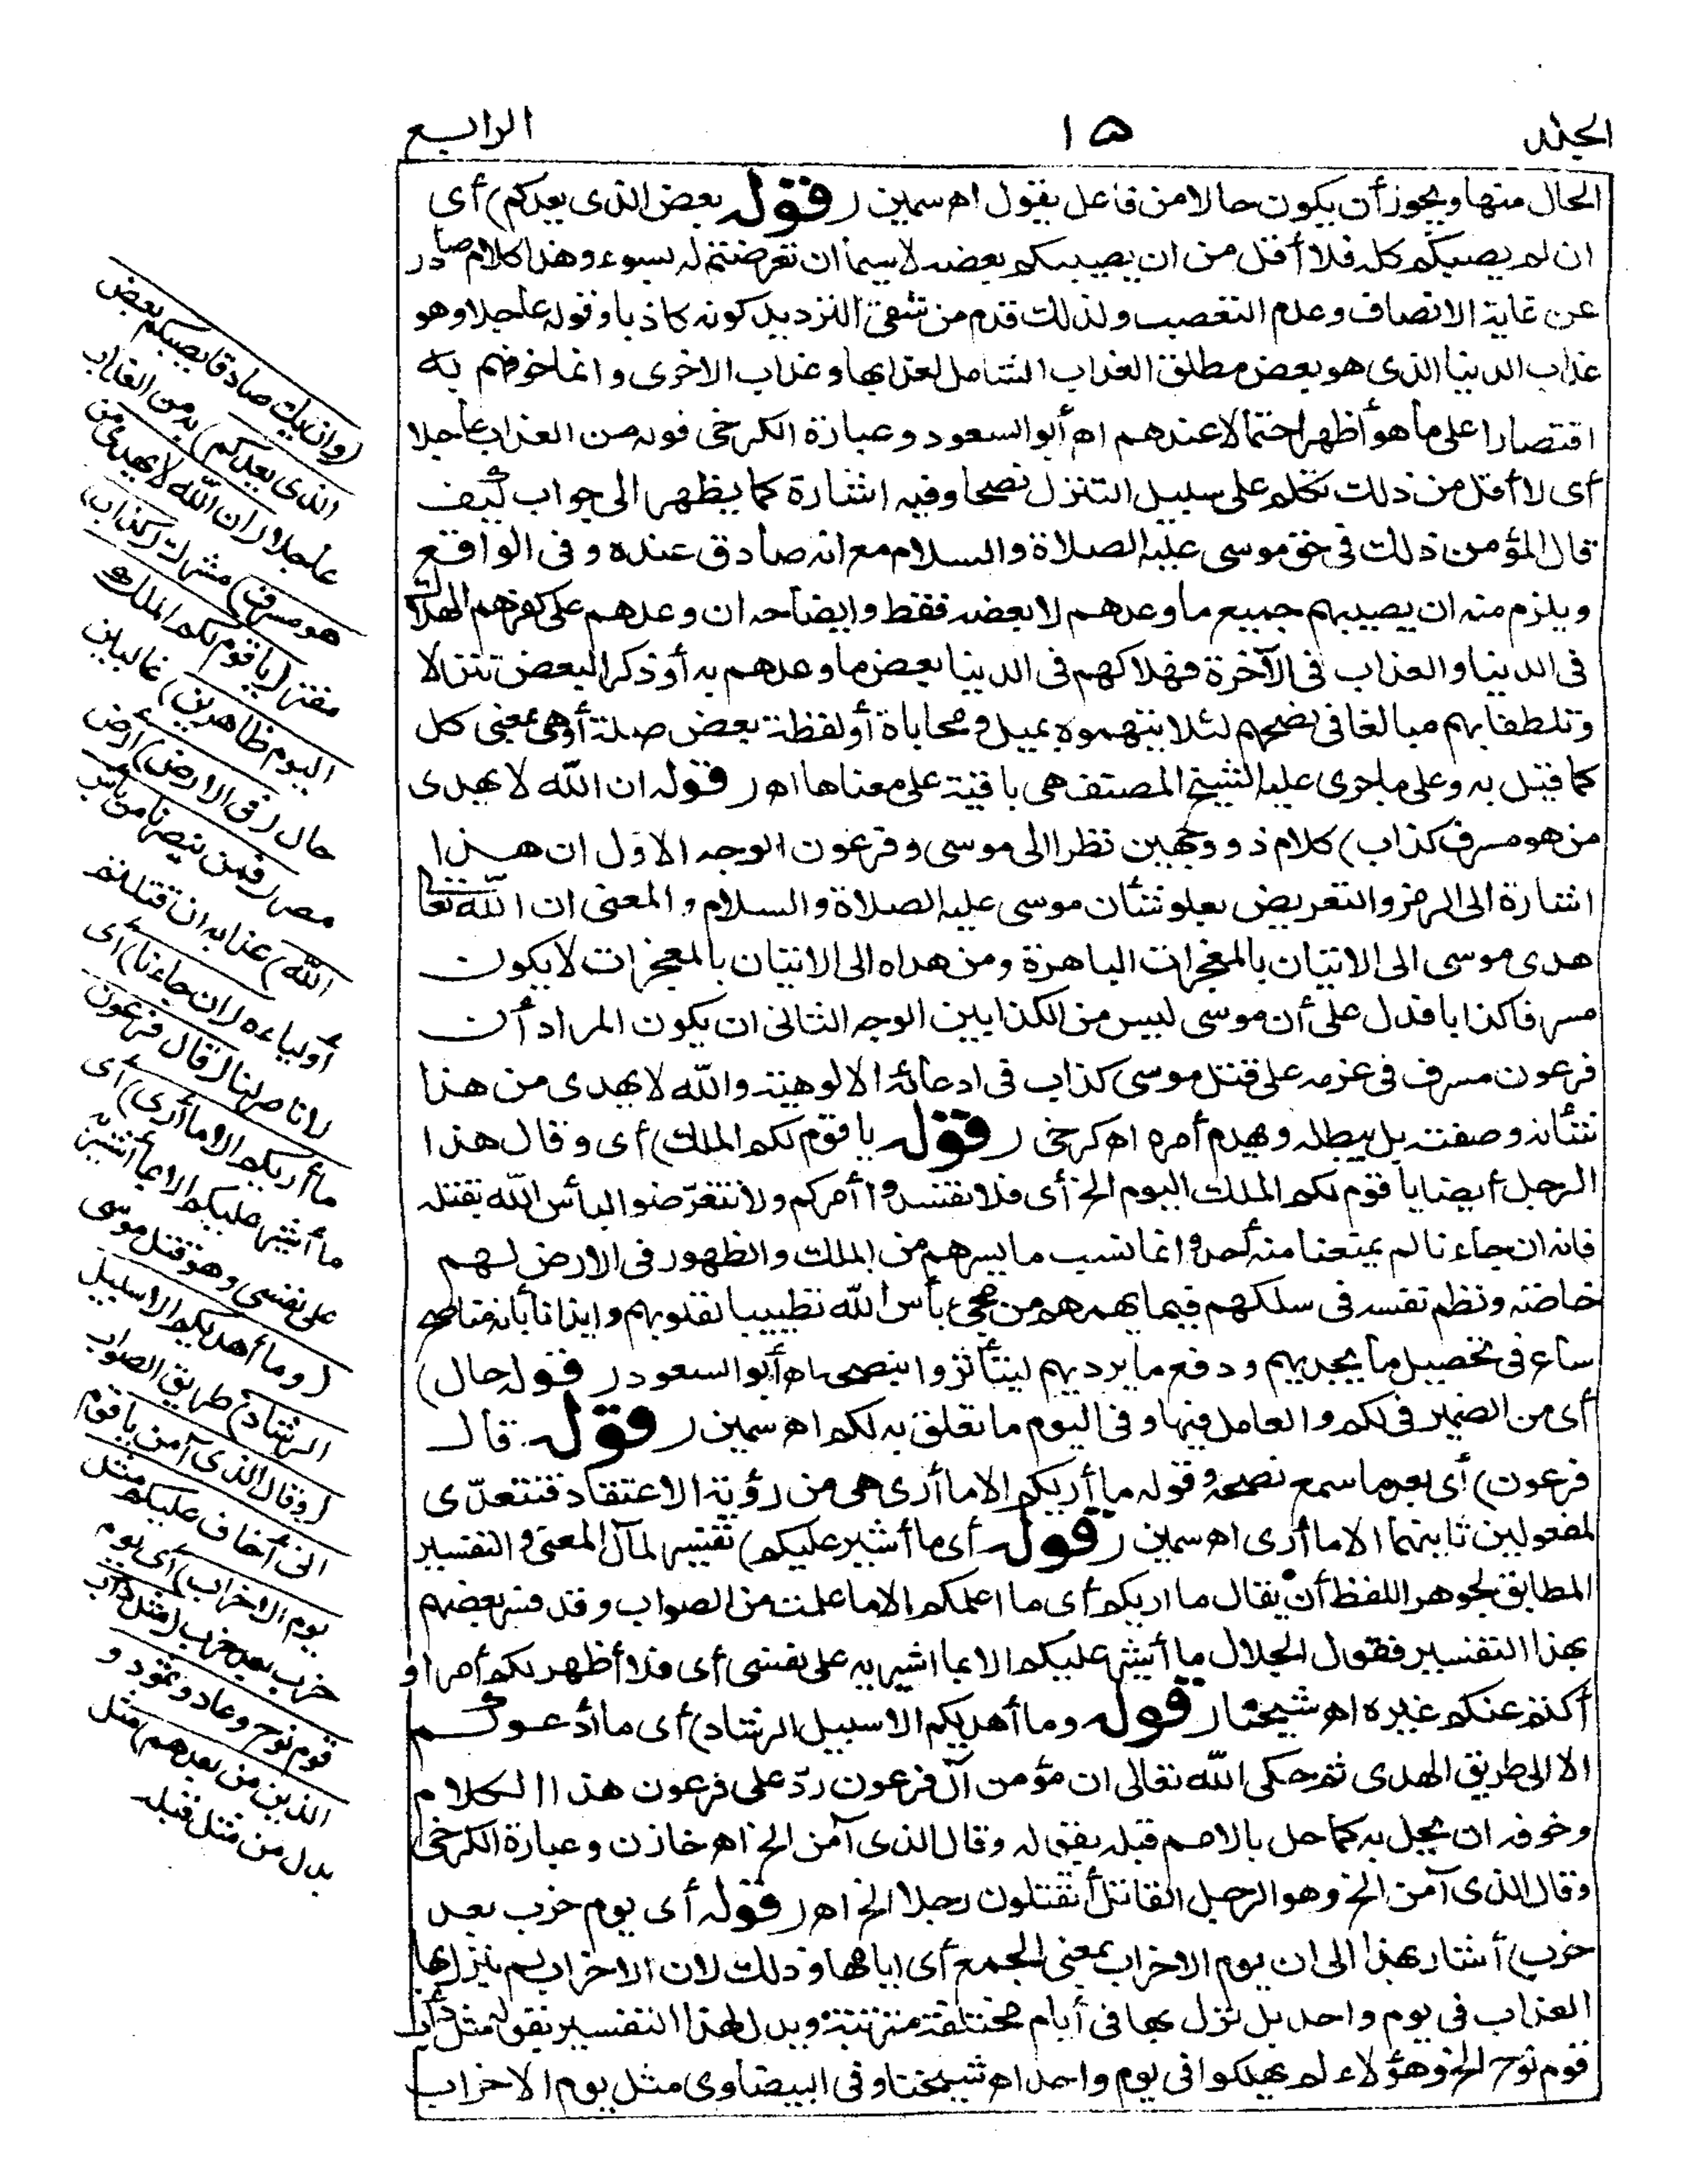 الجلد ١٥ الرابع
الحال منها ويجوز أن يكون حالا من فاعل يقول اه سمين (قوله بعض الذى يعدكم) أى
ان لم يصبكم كله فلا أقل من ان يصيبكم بعضه لاسيما ان تعرضتم له بسوء وهذا كلام صادر
عن غاية الانصاف وعدم التعصب ولذلك قدم من شقى الترديد كونه كاذبا وقوله عاجلا وهو
عذاب الدنيا الذى هو بعض مطلق العذاب الشامل لعذابها وعذاب الاخرى وانما خوفهم به
اقتصارا على ما هو أظهر احتمالا عندهم اه أبو السعود وعبارة الكرخى قوله من العذاب عاجلا
أى لا أقل من ذلك تكلم على سبيل التنزل نصحا وفيه اشارة كما يظهر الى جواب كيف
قال المؤمن ذلك فى حق موسى عليه الصلاة والسلام مع انه صادق عنده وفى الواقع
ويلزم منه ان يصيبهم جميع ما وعدهم لا بعضه فقط وايضاحه ان وعدهم على كفرهم الهلاك
فى الدنيا والعذاب فى الآخرة فهلاكهم فى الدنيا بعض ما وعدهم به أو ذكر البعض تنزلا
وتلطفا بهم مبالغا فى نصحهم لئلا يتهموه بميل ومحاباة أو لفظة بعض صلة أو هى بمعنى كل
كما قيل به وعلى ما جرى عليه الشيخ المصنف هى باقية على معناها اه (قوله ان الله لا يهدى
من هو مسرف كذاب) كلام ذو وجهين نظرا الى موسى وفرعون الوجه الاول ان هذا
اشارة الى الرمز والتعريض بعلو شأن موسى عليه الصلاة والسلام والمعنى ان الله تعالى
هدى موسى الى الاتيان بالمعجزات الباهرة ومن هداه الى الاتيان بالمعجزات لا يكون
مسرفا كذابا فدل على أن موسى ليس من الكذابين الوجه الثانى ان يكون المراد أن
فرعون مسرف فى عزمه على قتل موسى كذاب فى ادعائه الالوهية والله لا يهدى من هذا
شأنه وصفته بل يبطله ويهدم أمره اه كرخى (قوله يا قوم لكم الملك) أى وقال هذا
الرجل أيضا يا قوم لكم الملك اليوم الخ أى فلا تفسدوا أمركم ولا تتعرضوا لبأس الله بقتله
فانه ان جاءنا لم يمنعنا منه أحد وانما نسب ما يسرهم من الملك والظهور فى الارض لهم
خاصة ونظم نفسه فى سلكهم فيما يهمهم من مجىء بأس الله تطييبا لقلوبهم وايذانا بأنه مناصح
ساع فى تحصيل ما يجديهم ودفع ما يرديهم ليتأثروا بنصحه اه أبو السعود (قوله حال)
أى من الضمير فى لكم والعامل فيها وفى اليوم ما تعلق به لكم اه سمين (قوله قال
فرعون) أى بعد ما سمع نصحه وقوله ما أريكم الا ما أرى هى من رؤية الاعتقاد فتتعدى
لمفعولين ثانيهما الا ما أرى اه سمين (قوله أى ما أشير عليكم) تفسير لمآل المعنى والتفسير
المطابق لجوهر اللفظ أن يقال ما اريكم أى ما اعلمكم الا ما علمت من الصواب وقد فسر بعضهم
بهذا التفسير فقول الجلال ما أشير عليكم الا بما اشير به على نفسى أى فلا أظهر لكم أمرا و
أكتم عنكم غيره اه شيخنا (قوله وما أهديكم الا سبيل الرشاد) أى ما أدعوكم
الا الى طريق الهدى ثم حكى الله تعالى ان مؤمن آل فرعون ردّ على فرعون هذا الكلام
وخوفه ان يحل به كما حل بالامم قبله بقوله وقال الذى آمن الخ اه خازن وعبارة الكرخى
وقال الذى آمن الخ وهو الرجل القائل أتقتلون رجلا الخ اه (قوله أى يوم حزب بعد
حزب) أشار بهذا الى ان يوم الاحزاب بمعنى الجمع أى ايامها وذلك لان الاحزاب لم ينزل بها
العذاب فى يوم واحد بل نزل بها فى أيام مختلفة مترتبة ويدل لهذا التفسير بقوله مثل دأب
قوم نوح الخ وهؤلاء لم يهلكوا فى يوم واحد اه شيخنا وفى البيضاوى مثل يوم الاحزاب
(وان يك صادقا يصبكم بعض
الذى يعدكم) به من العذاب
عاجلا (ان الله لا يهدى من
هو مسرف) مشرك (كذاب)
مفتر (يا قوم لكم الملك
اليوم ظاهرين) غالبين
حال (فى الارض) أرض
مصر (فمن ينصرنا من بأس
الله) عذابه ان قتلتم
أولياءه (ان جاءنا) أى
لا ناصر لنا (قال فرعون
ما أريكم الا ما أرى) أى
ما أشير عليكم الا بما أشير به
على نفسى وهو قتل موسى
(وما أهديكم الا سبيل
الرشاد) طريق الصواب
(وقال الذى آمن يا قوم
انى أخاف عليكم مثل
يوم الاحزاب) أى يوم
حزب بعد حزب (مثل دأب
قوم نوح وعاد وثمود و
الذين من بعدهم) مثل
بدل من مثل قبله